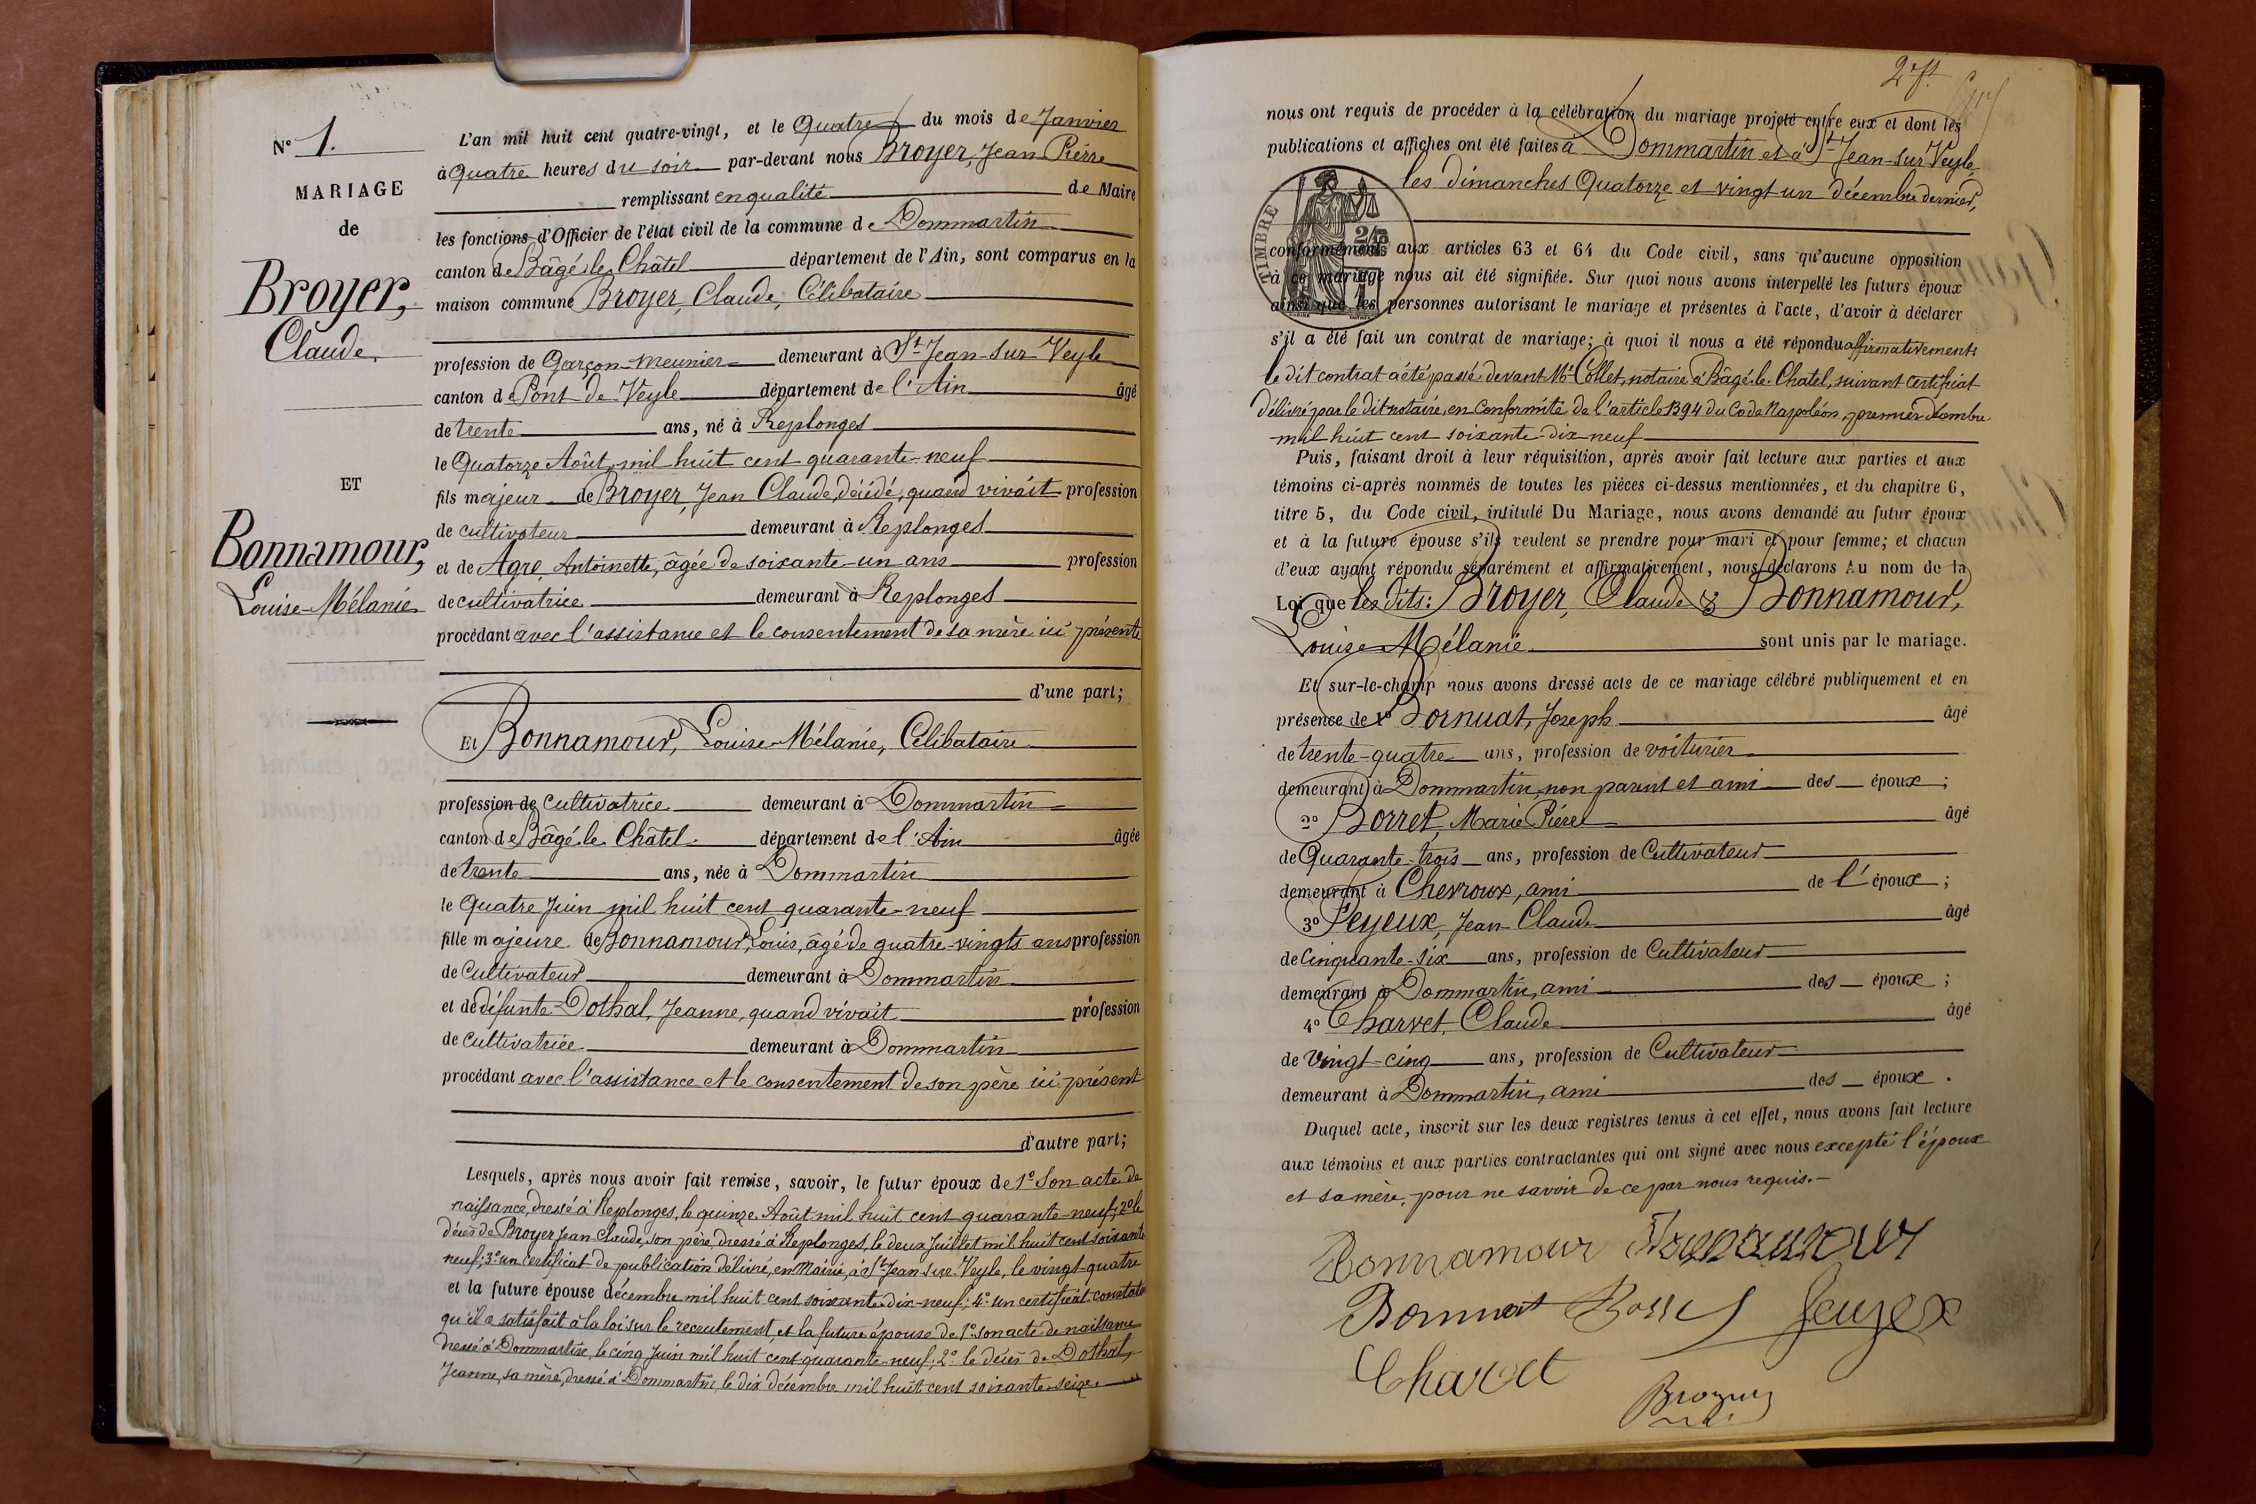 N° 1.
MARIAGE
de
Broyer,
Claude,
ET
Bonnamour,
Louise-Mélanie
L'an mil huit cent quatre-vingt, et le Quatre du mois de Janvier
à Quatre heures du soir par-devant nous Broyer, Jean Pierre
remplissant en qualité de Maire
les fonctions d'Officier de l'état civil de la commune de Dommartin
canton de Bâgé-le-Châtel département de l'Ain, sont comparus en la
maison commune Broyer, Claude, Célibataire
profession de Garçon-meunier demeurant à St Jean-sur-Veyle
canton de Pont-de-Veyle département de l'Ain âgé
de trente ans, né à Replonges
le Quatorze Août mil huit cent quarante-neuf
fils majeur de Broyer, Jean Claude, décédé, quand vivait profession
de cultivateur demeurant à Replonges
et de Agre, Antoinette, âgée de soixante-un ans profession
de cultivatrice demeurant à Replonges
procédant avec l'assistance et le consentement de sa mère ici présente
d'une part;
Et Bonnamour, Louise-Mélanie, Célibataire
profession de cultivatrice demeurant à Dommartin
canton de Bâgé-le-Châtel département de l'Ain âgée
de trente ans, née à Dommartin
le Quatre Juin mil huit cent quarante-neuf
fille majeure de Bonnamour, Louis, âgé de quatre-vingts ans profession
de Cultivateur demeurant à Dommartin
et de défunte Dothal, Jeanne, quand vivait profession
de cultivatrice demeurant à Dommartin
procédant avec l'assistance et le consentement de son père ici présent
d'autre part;
Lesquels, après nous avoir fait remise, savoir, le futur époux de 1° Son acte de
naissance, dressé à Replonges, le quinze Août mil huit cent quarante-neuf; 2° le
décès de Broyer Jean-Claude, son père, dressé à Replonges, le deux Juillet mil huit cent soixante
neuf; 3° un certificat de publication délivré, en Mairie, à St Jean-sur-Veyle, le vingt-quatre
et la future épouse décembre mil huit cent soixante-dix-neuf; 4° un certificat constatant
qu'il a satisfait à la loi sur le recrutement, et la future épouse de 1° son acte de naissance
dressé à Dommartin, le cinq Juin mil huit cent quarante-neuf; 2° le décès de Dothal,
Jeanne, sa mère, dressé à Dommartin, le dix décembre mil huit cent soixante-seize.
2 ft
nous ont requis de procéder à la célébration du mariage projeté entre eux et dont les
publications et affiches ont été faites à Dommartin et à St-Jean-sur-Veyle
les dimanches Quatorze et vingt-un décembre dernier,
TIMBRE
conformément aux articles 63 et 64 du Code civil, sans qu'aucune opposition
à ce mariage nous ait été signifiée. Sur quoi nous avons interpellé les futurs époux
ainsi que les personnes autorisant le mariage et présentes à l'acte, d'avoir à déclarer
s'il a été fait un contrat de mariage; à quoi il nous a été répondu affirmativement
le dit contrat a été passé devant Me Collet, notaire à Bâgé-le-Chatel, suivant certificat
délivré par le dit notaire, en conformité de l'article 1394 du Code Napoléon, premier décembre
mil huit cent soixante-dix-neuf
Puis, faisant droit à leur réquisition, après avoir fait lecture aux parties et aux
témoins ci-après nommés de toutes les pièces ci-dessus mentionnées, et du chapitre 6,
titre 5, du Code civil, intitulé Du Mariage, nous avons demandé au futur époux
et à la future épouse s'ils veulent se prendre pour mari et pour femme; et chacun
d'eux ayant répondu séparément et affirmativement, nous déclarons Au nom de la
Loi que les dits: Broyer, Claude & Bonnamour,
Louise-Mélanie sont unis par le mariage.
Et sur-le-champ nous avons dressé acte de ce mariage célébré publiquement et en
présence de 1° Bornuat, Joseph âgé
de trente-quatre ans, profession de voiturier
demeurant à Dommartin, non parent et ami des époux;
2° Borret, Marie Pierre âgé
de Quarante-trois ans, profession de Cultivateur
demeurant à Chevroux, ami de l'époux;
3° Feyeux, Jean-Claude âgé
de Cinquante-six ans, profession de Cultivateur
demeurant à Dommartin, ami des époux;
4° Charvet, Claude âgé
de Vingt-cinq ans, profession de Cultivateur
demeurant à Dommartin, ami des époux.
Duquel acte, inscrit sur les deux registres tenus à cet effet, nous avons fait lecture
aux témoins et aux parties contractantes qui ont signé avec nous excepté l'époux
et sa mère, pour ne savoir de ce par nous requis.
Bonnamour Bonnamour
Bornuat Borret Feuyex
Charvet
Broyer